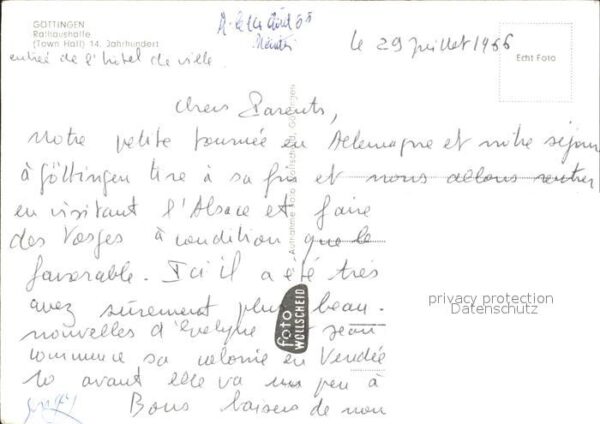 GÖTTINGEN
Rathaushalle
(Town Hall) 14. Jahrhundert
entrée de l'hôtel de ville
le 29 juillet 1966
Echt Foto
Chers Parents,
Notre petite tournée en Allemagne et notre séjour
à Göttingen tire à sa fin et nous allons rentrer
en visitant l'Alsace et faire
des Vosges à condition que le
favorable. Ici il a été très
avez sûrement plus beau.
nouvelles d'Evelyne et Jean
commence sa colonie en Vendée
10 avant elle va un peu à
Bons baisers de nou
Aufnahme Foto Wollscheid, Göttingen
foto
WOLLSCHEID
privacy protection
Datenschutz